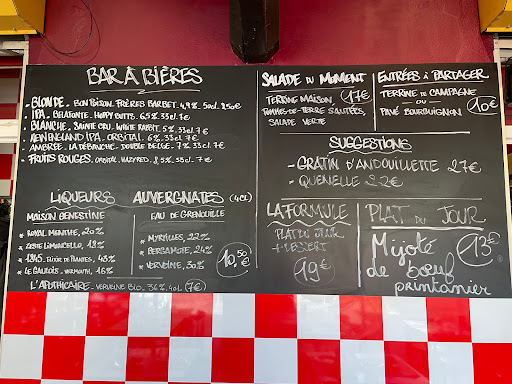 BAR À BIÈRES
- BLONDE. BON POISON. FRÈRES BARBET. 4,9% 50cl. 7,50€
- IPA. BELATONE. HOPPY BUTTS. 6.5% 33cl 7€
- BLANCHE. SAINTE CRU. WHITE RABBIT. 5% 33cl 7€
- NEW ENGLAND IPA. ORBITAL. 6% 33cl 7€
- AMBRÉE. LA DÉBAUCHE. DOUBLE BELGE. 7% 33cl. 7€
- FRUITS ROUGES. ORBITAL, HAZY RED. 8,5% 33cl. 7€
LIQUEURS AUVERGNATES (4cl)
MAISON BENESTINE
* ROYAL MENTHE, 20%
* LIMONCELLO, 18%
* 1845. ELIXIR DE PLANTES, 48%
* LE GAULOIS - VERMOUTH, 16%
EAU DE GRENOUILLE
* MYRTILLES, 22%
* BERGAMOTE, 24%
* VERVEINE, 30%
10,50€
L'APOTHICAIRE - VERVEINE BIO. 36% 4cl (7€)
SALADE DU MOMENT
TERRINE MAISON 17€
POMMES-DE-TERRE SAUTÉES,
SALADE VERTE
ENTRÉES À PARTAGER
TERRINE DE CAMPAGNE
- OU -
PAVÉ BOURGUIGNON
10€
SUGGESTIONS
- GRATIN D'ANDOUILLETTE 27€
- QUENELLE 22€
LA FORMULE
PLAT DU JOUR
+ DESSERT
19€
PLAT DU JOUR
13€
Mijoté
de bœuf
printanier